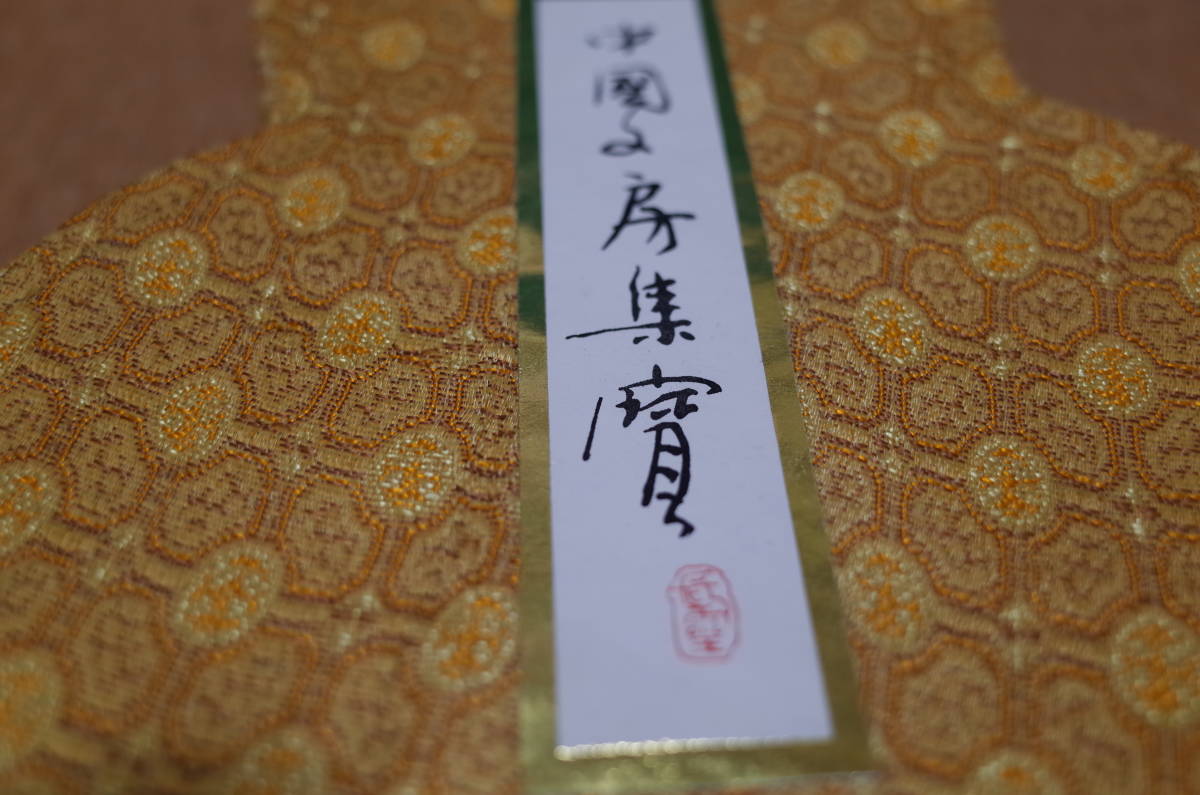 中國文房集寶